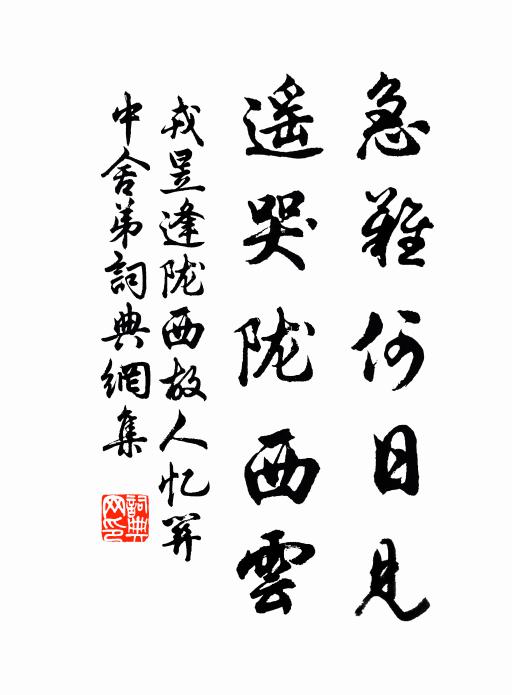 急難何日見
遥哭陇西雲
戎昱逢陇西故人忆関
中舍弟詞典網集
詞典
网印